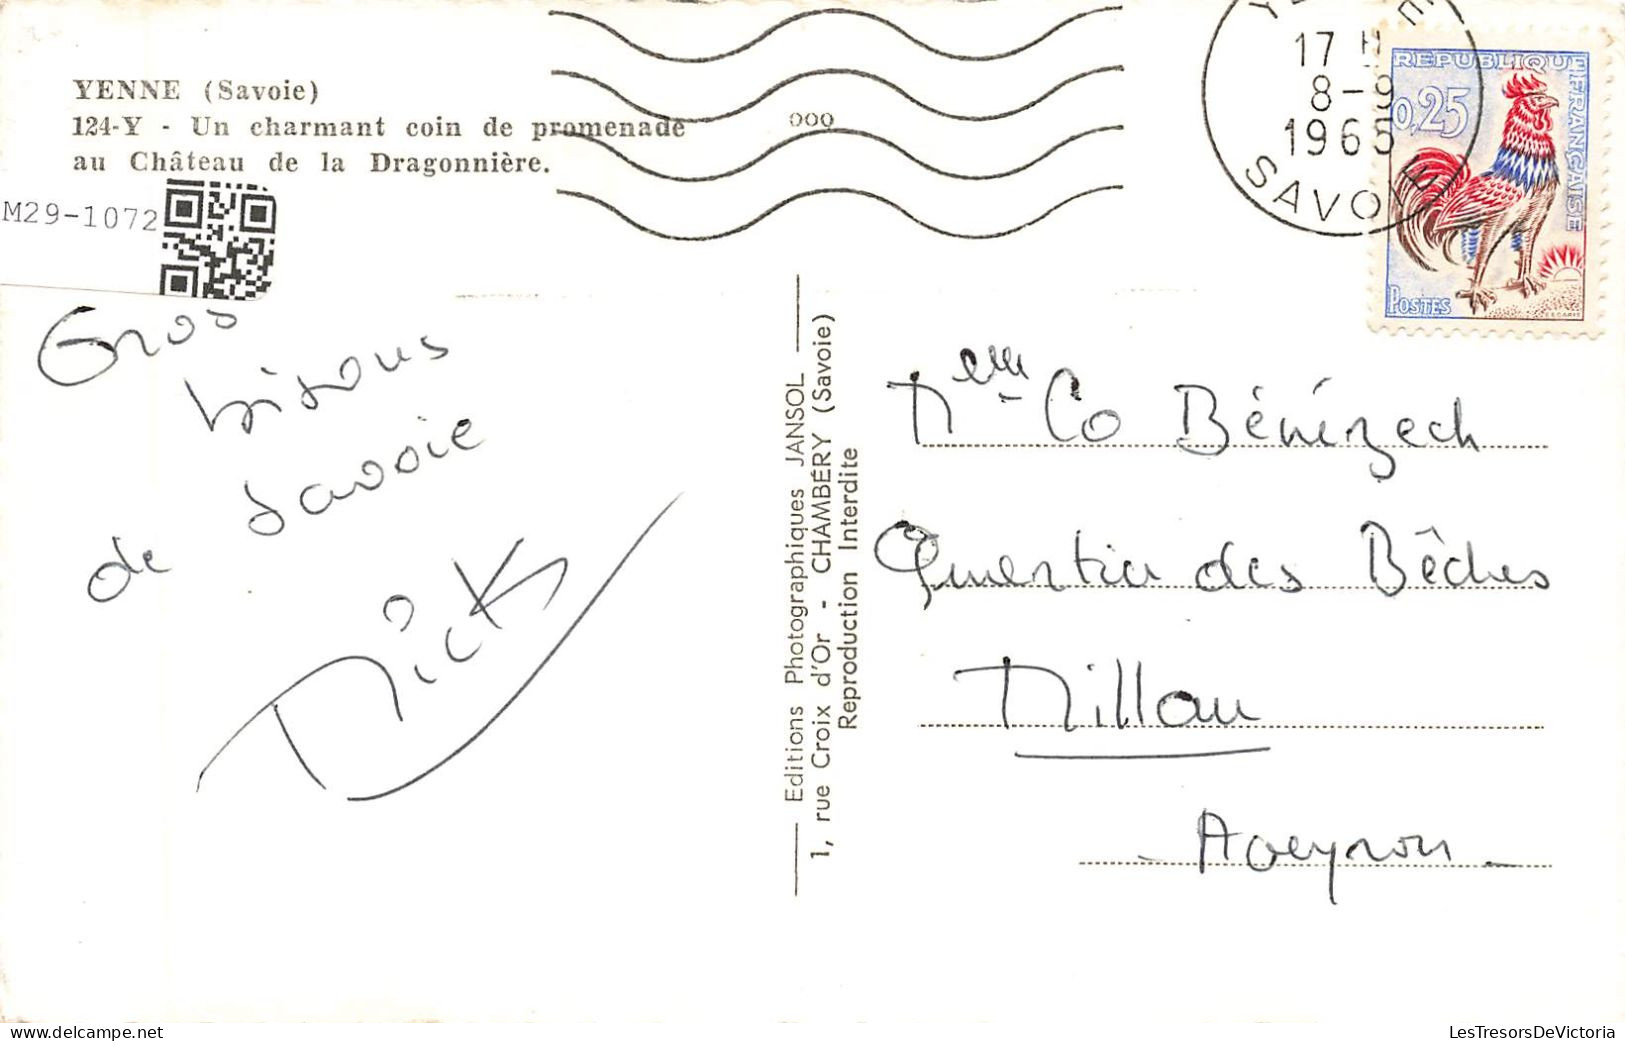 YENNE (Savoie)
124-Y - Un charmant coin de promenade
au Château de la Dragonnière.
M29-1072
17 H
8-9
1965
SAVOIE
REPUBLIQUE FRANÇAISE
0,25
POSTES
Gros
bisous
de Savoie
Mick
Editions Photographiques JANSOL
1, rue Croix d'Or - CHAMBÉRY (Savoie)
Reproduction Interdite
Melle Co Bénézech
Quartier des Bêches
Millau
- Aveyron -
www.delcampe.net
LesTresorsDeVictoria